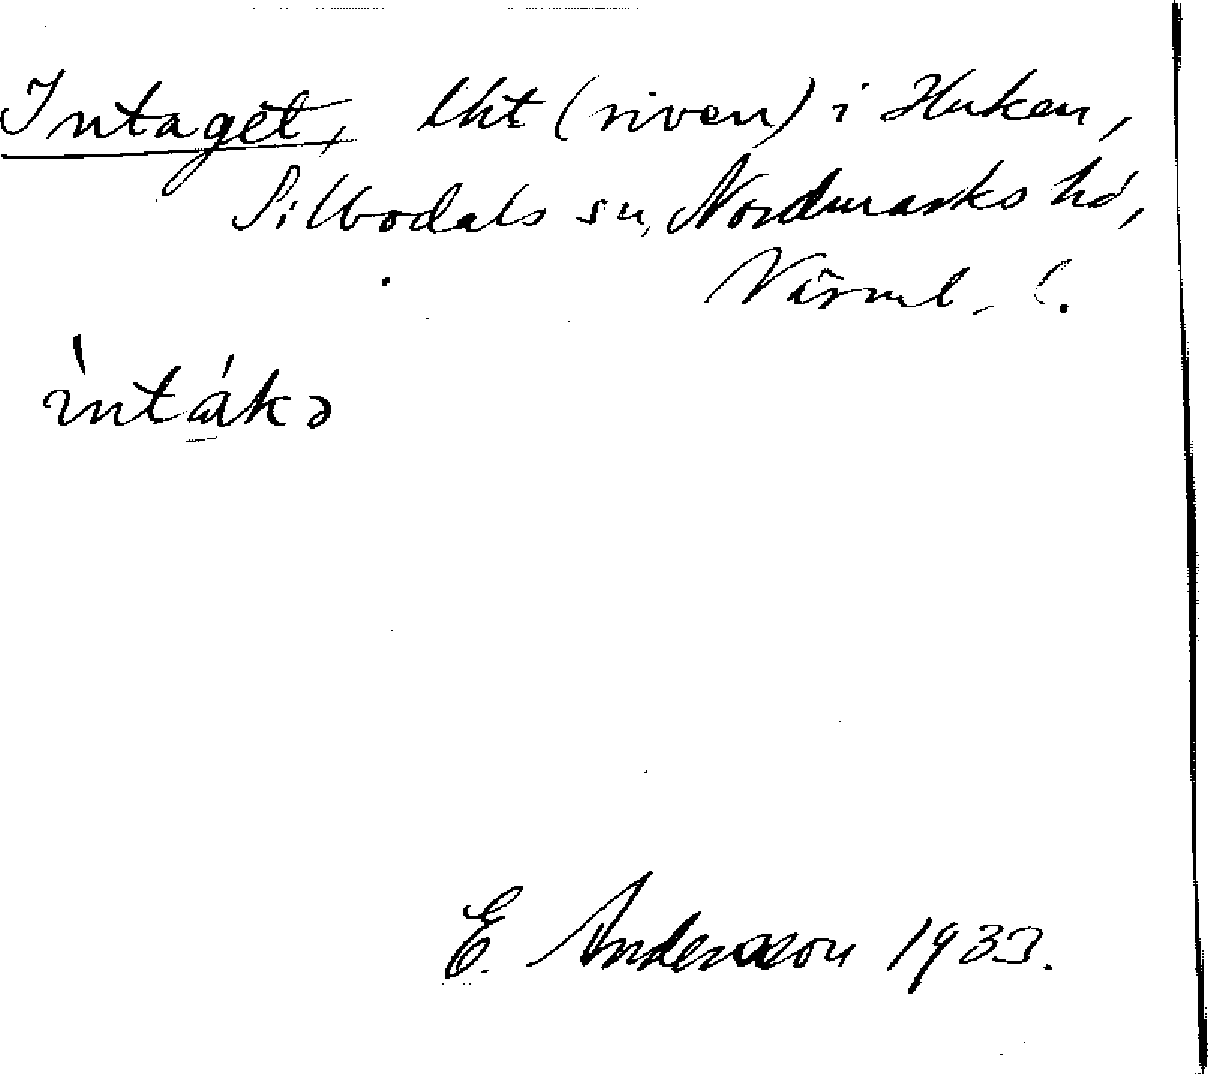 Intaget, lht (riven) i Huken,
Silbodals sn, Nordmarks hd,
Värml. l.
ìntákə
E. Andersson 1933.